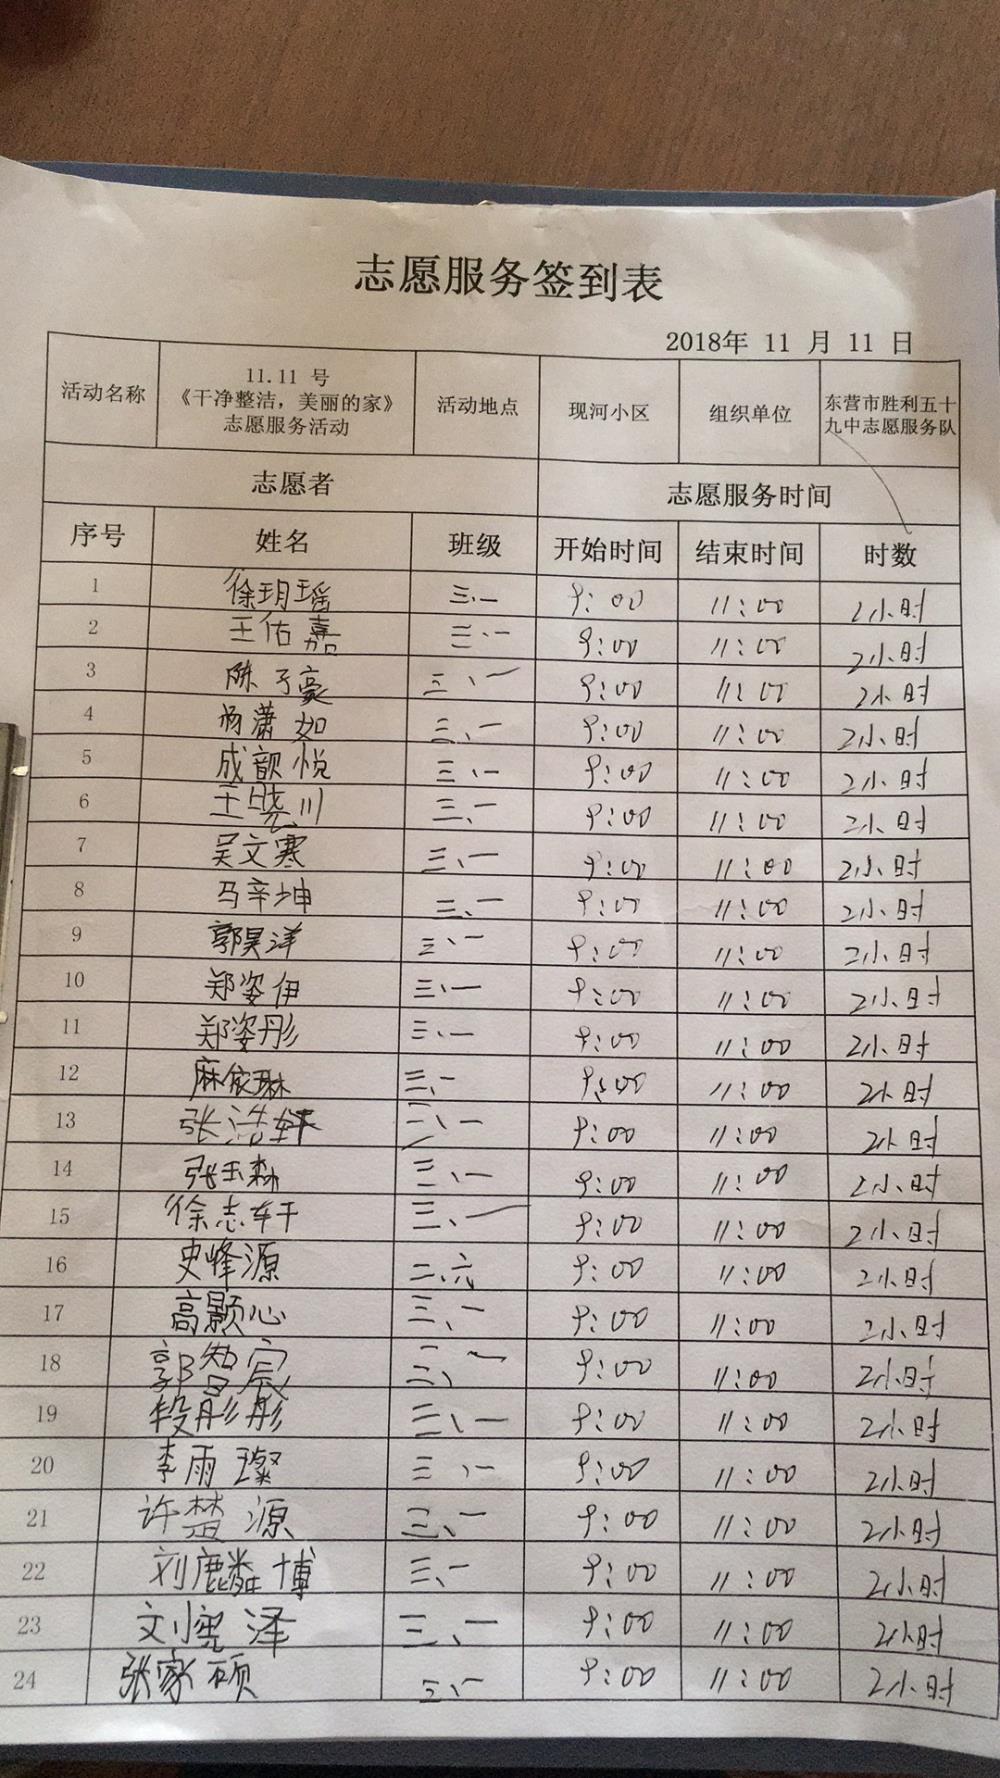 志愿服务签到表
2018年 11 月 11 日
活动名称 11.11 号《干净整洁，美丽的家》志愿服务活动 活动地点 现河小区 组织单位 东营市胜利五十九中志愿服务队
志愿者 志愿服务时间
序号 姓名 班级 开始时间 结束时间 时数
1 徐玥瑶 三.一 9:00 11:00 2小时
2 王佑嘉 三.一 9:00 11:00 2小时
3 陈子豪 三、一 9:00 11:00 2小时
4 杨潇如 三、一 9:00 11:00 2小时
5 成韵悦 三、一 9:00 11:00 2小时
6 王晓川 三、一 9:00 11:00 2小时
7 吴文寒 三、一 9:00 11:00 2小时
8 马辛坤 三、一 9:00 11:00 2小时
9 郭昊洋 三、一 9:00 11:00 2小时
10 郑姿伊 三、一 9:00 11:00 2小时
11 郑姿彤 三、一 9:00 11:00 2小时
12 麻依琳 三、一 9:00 11:00 2小时
13 张浩轩 三、一 9:00 11:00 2小时
14 张玉森 三、一 9:00 11:00 2小时
15 徐志轩 三、一 9:00 11:00 2小时
16 史峰源 二、六 9:00 11:00 2小时
17 高颢心 三、一 9:00 11:00 2小时
18 郭智宸 三、一 9:00 11:00 2小时
19 段彤彤 三、一 9:00 11:00 2小时
20 李雨璨 三、一 9:00 11:00 2小时
21 许楚源 三、一 9:00 11:00 2小时
22 刘麟博 三、一 9:00 11:00 2小时
23 刘 泽 三、一 9:00 11:00 2小时
24 张家硕 三、一 9:00 11:00 2小时